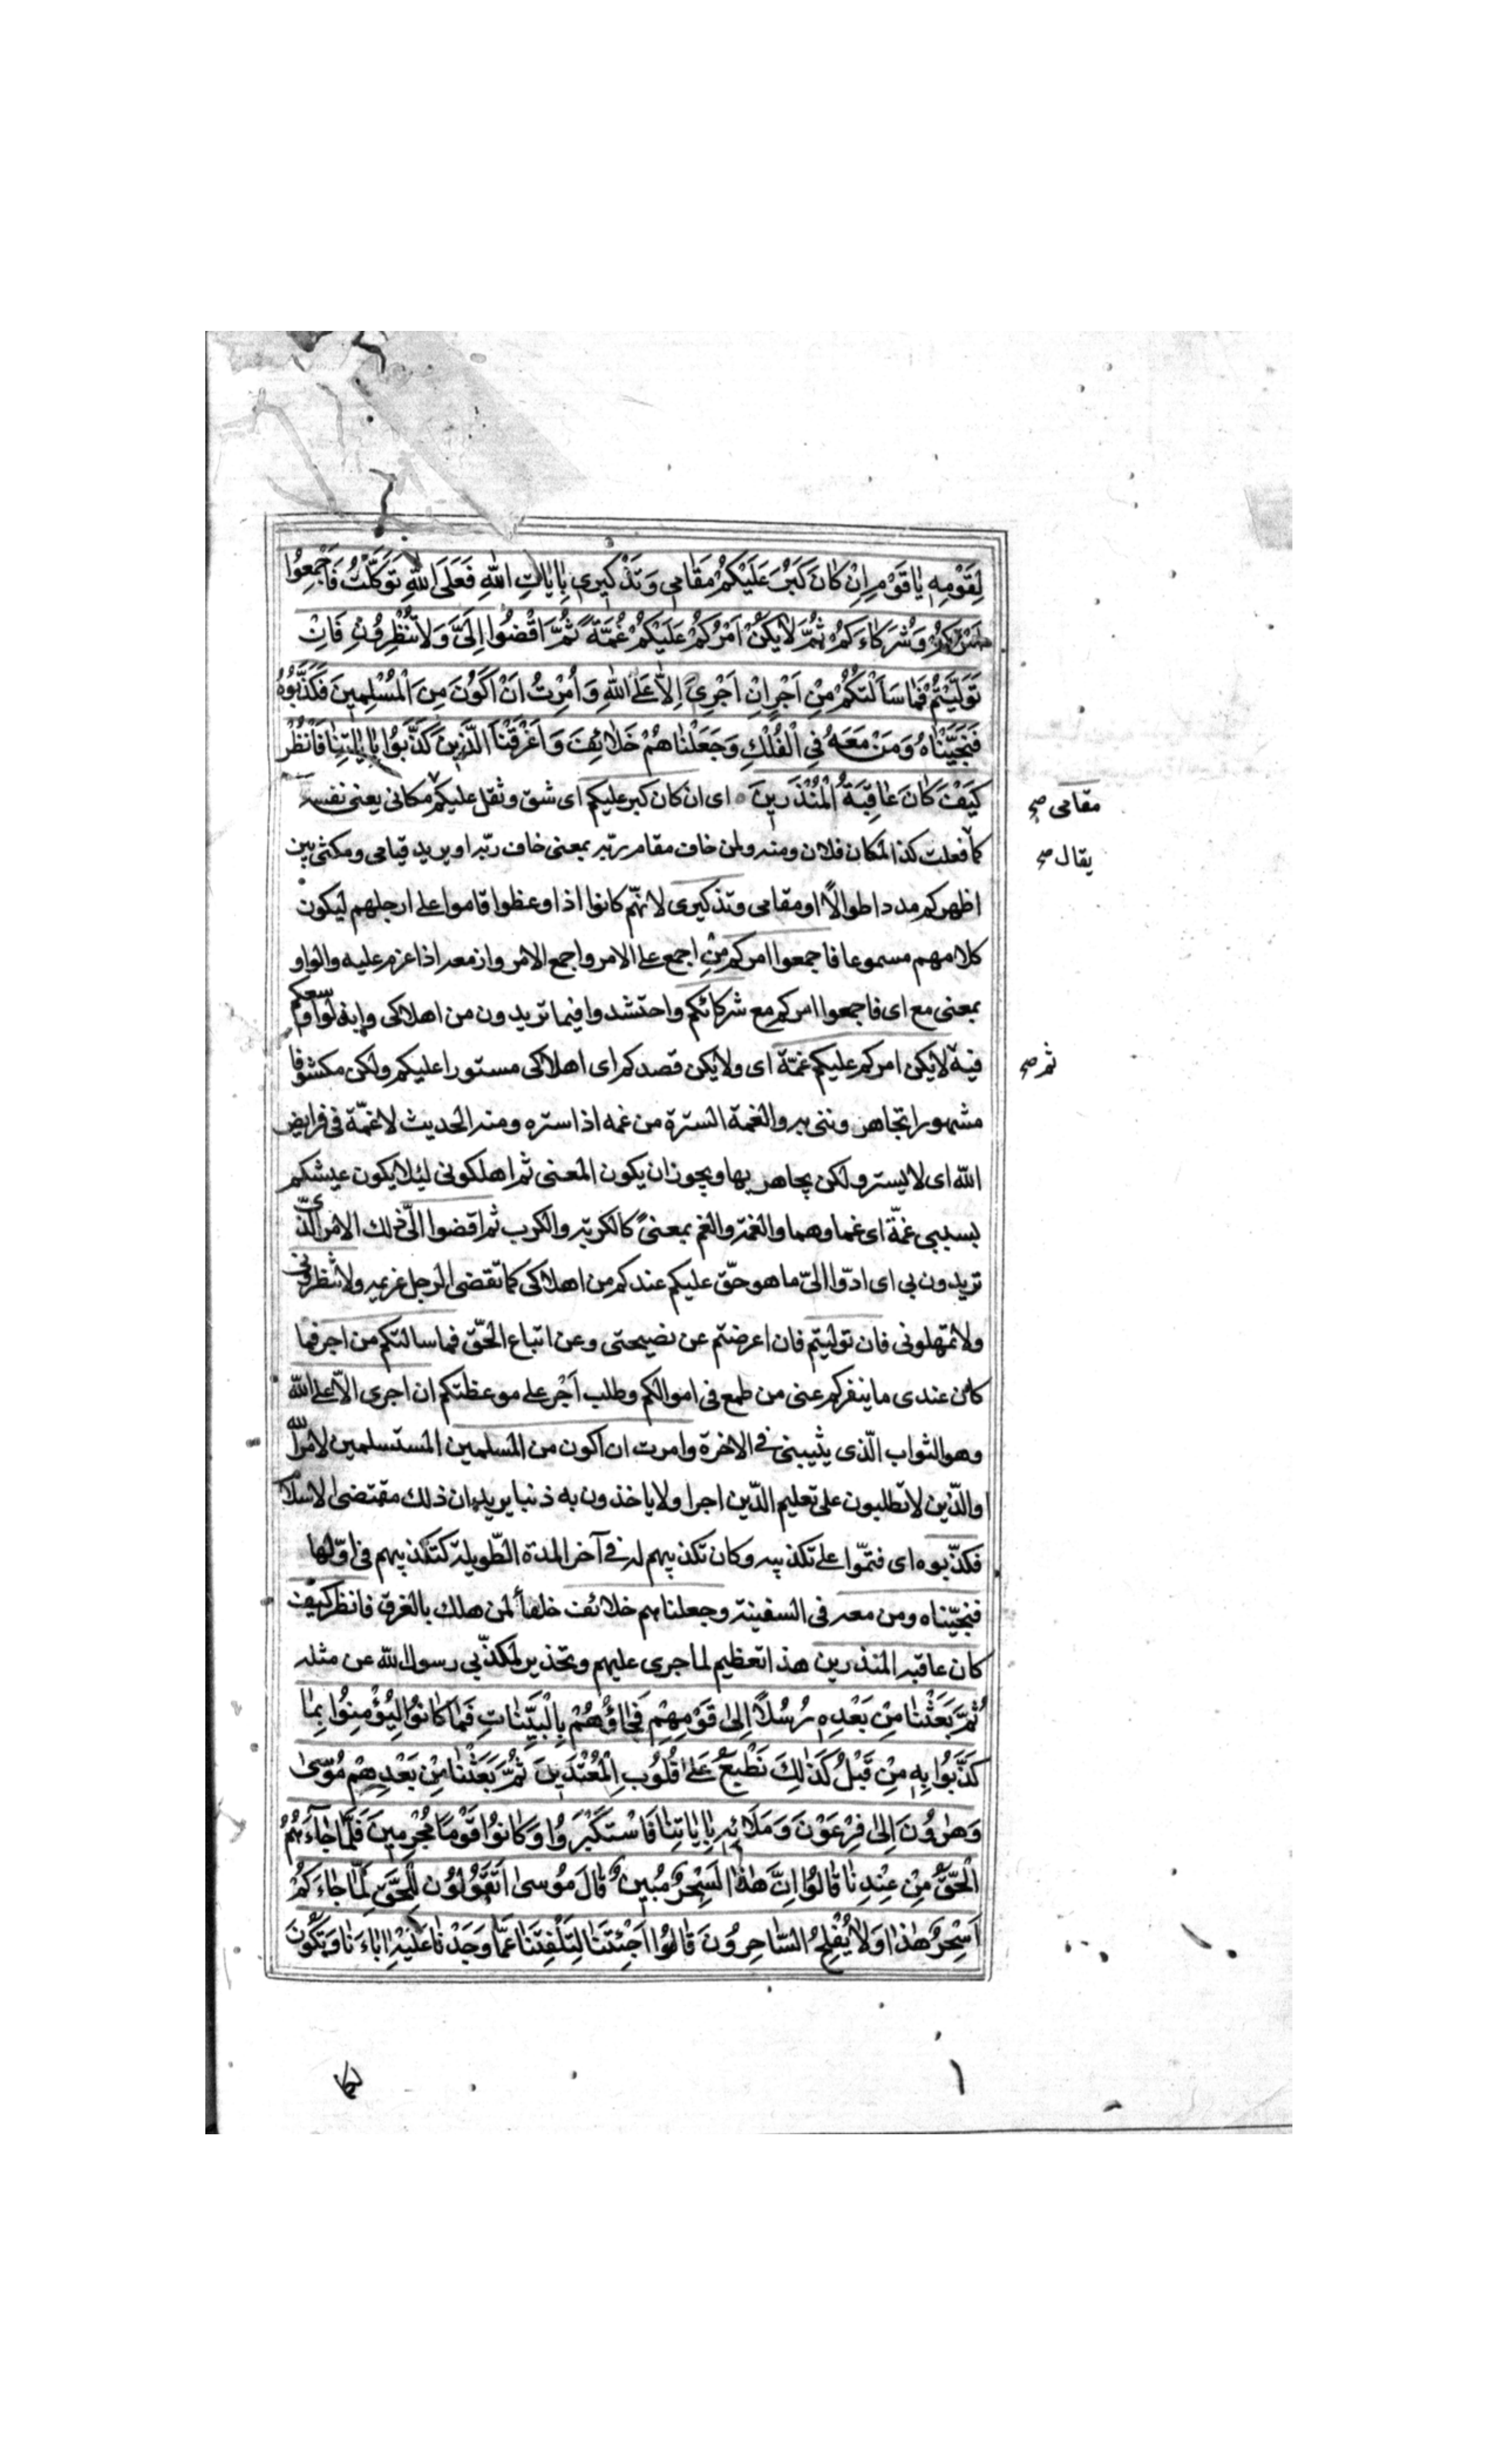 لِقَوْمِهِ يَا قَوْمِ اِنْ كَانَ كَبُرَ عَلَيْكُمْ مَقَامِي وَ تَذْكِيرِي بِايَاتِ اللهِ فَعَلَى اللهِ تَوَكَّلْتُ فَاَجْمِعُوا
اَمْرَكُمْ وَ شُرَكَاءَكُمْ ثُمَّ لَايَكُنْ اَمْرُكُمْ عَلَيْكُمْ غُمَّةً ثُمَّ اقْضُوا اِلَيَّ وَ لَا تُنْظِرُونِ فَاِنْ
تَوَلَّيْتُمْ فَمَا سَاَلْتُكُمْ مِنْ اَجْرٍ اِنْ اَجْرِيَ اِلَّا عَلَى اللهِ وَ اُمِرْتُ اَنْ اَكُونَ مِنَ الْمُسْلِمِينَ فَكَذَّبُوهُ
فَنَجَّيْنَاهُ وَ مَنْ مَعَهُ فِي الْفُلْكِ وَ جَعَلْنَاهُمْ خَلَائِفَ وَ اَغْرَقْنَا الَّذِينَ كَذَّبُوا بِايَاتِنَا فَانْظُرْ
كَيْفَ كَانَ عَاقِبَةُ الْمُنْذَرِينَ ٥ اى ان كان كبر عليكم اى شق و ثقل عليكم مكانى يعنى نفسه
مقامى صح
كما فعلت كذا لمكان فلان ومنه ولمن خاف مقام ربّه بمعنى خاف ربّه او يريد قيامى و مكثى بين
يقال صح
اظهركم مددا طوالاً او مقامى وتذكيرى لانّهم كانوا اذا وعظوا قاموا على ارجلهم ليكون
كلامهم مسموعا فاجمعوا امركم مِن اجمع على الامر و اجمع الامر وازمعه اذا عزم عليه والواو
بمعنى مع اى فاجمعوا امركم مع شركائكم واحتشدوا فيما تريدون من اهلاكى وابذلوا وسعكم
فيه لايكن امركم عليكم غمّة اى ولايكن قصدكم اى اهلاكى مستورا عليكم ولكن مكشوفا
ثم صح
مشهورا تجاهروننى به والغمة السترة من غمه اذا ستره ومنه الحديث لاغمّة فى فرايض
اللّه اى لا يستر ولكن يجاهر بها ويجوز ان يكون المعنى ثم اهلكونى ليلا يكون عيشكم
بسببى غمّة اى غما وهما والغمّة والغم بمعنىً كالكربة والكرب ثم اقضوا الىّ ذلك الامر الّذى
تريدون بى اى ادّوا الىّ ما هو حقّ عليكم عندكم من اهلاكى كما تقضى الرجل غريمه ولا تنظرونى
ولا تمهلونى فان توليتم فان اعرضتم عن نصيحتى وعن اتباع الحقّ فما سالتكم من اجر فما
كان عندى ما ينفركم عنى من طمع فى اموالكم وطلب اَجْر على موعظتكم ان اجرى الّا على اللّه
وهو الثواب الّذى يثيبنى فى الاخرة وامرت ان اكون من المسلمين المستسلمين لامر اللّه
والّذين لا تطلبون على تعليم الدّين اجرا ولا ياخذون به دنيا يريد ان ذلك مقتضى الاسلام
فكذّبوه اى فتمّوا على تكذيبه وكان تكذيبهم له فى آخر المدة الطّويلة كتكذيبهم فى اوّلها
فنجّيناه ومن معه فى السفينة وجعلناهم خلائف خلفاً لمن هلك بالغرق فانظر كيف
كان عاقبة المنذرين هذا تعظيم لما جرى عليهم وتحذير لمكذّبى رسول اللّه عن مثله
ثُمَّ بَعَثْنَا مِنْ بَعْدِهِ رُسُلًا اِلَى قَوْمِهِمْ فَجَاؤُهُمْ بِالْبَيِّنَاتِ فَمَا كَانُوا لِيُؤْمِنُوا بِمَا
كَذَّبُوا بِهِ مِنْ قَبْلُ كَذَلِكَ نَطْبَعُ عَلَى قُلُوبِ الْمُعْتَدِينَ ثُمَّ بَعَثْنَا مِنْ بَعْدِهِمْ مُوسَى
وَ هَرُونَ اِلَى فِرْعَوْنَ وَ مَلَائِهِ بِايَاتِنَا فَاسْتَكْبَرُوا وَ كَانُوا قَوْمًا مُجْرِمِينَ فَلَمَّا جَاءَهُمُ
الْحَقُّ مِنْ عِنْدِنَا قَالُوا اِنَّ هَذَا لَسِحْرٌ مُبِينٌ قَالَ مُوسَى اَتَقُولُونَ لِلْحَقِّ لَمَّا جَاءَكُمْ
اَسِحْرٌ هَذَا وَلَا يُفْلِحُ السَّاحِرُونَ قَالُوا اَجِئْتَنَا لِتَلْفِتَنَا عَمَّا وَجَدْنَا عَلَيْهِ ابَاءَنَا وَ تَكُونَ
لكما